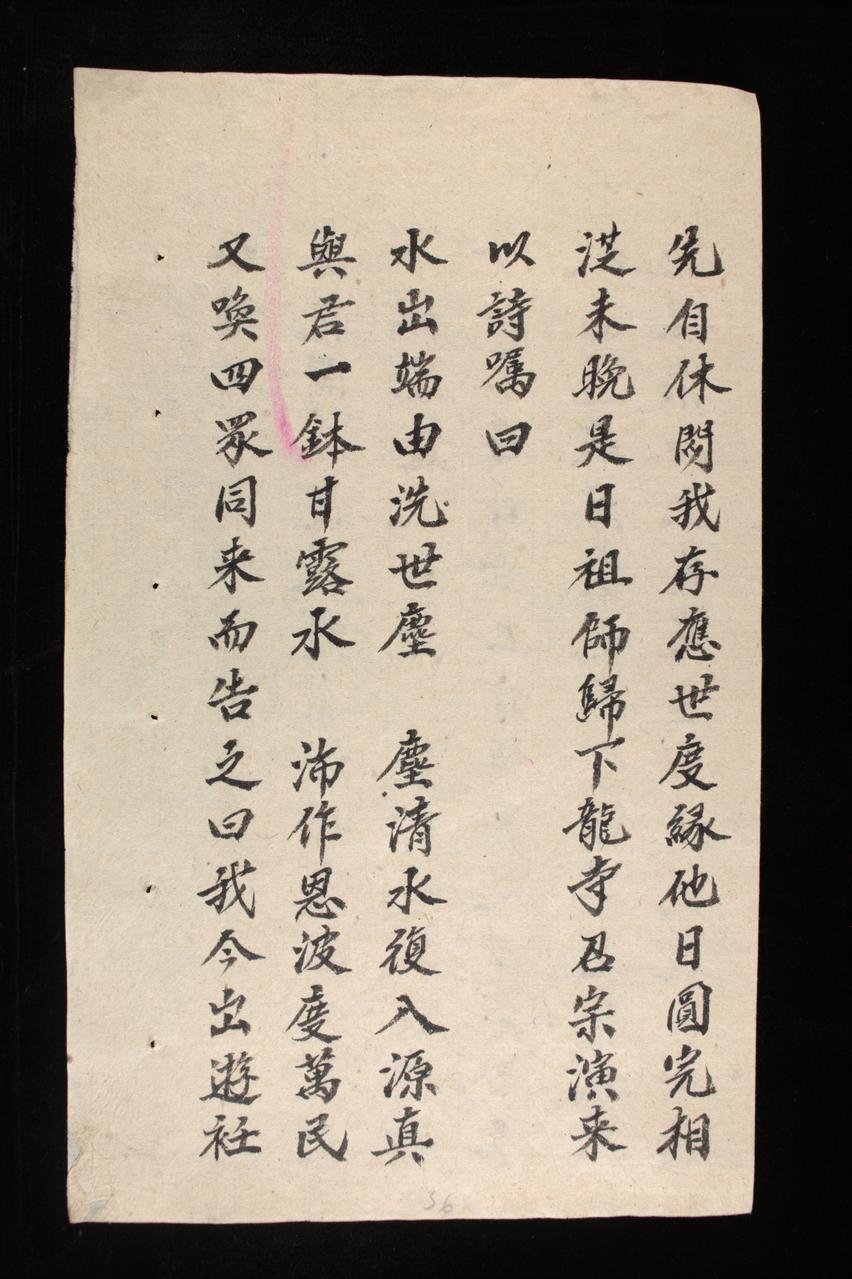 先自休閑我存應世度緣他日圓完相
從未晚是日祖師歸下龍寺召宗演来
以詩嘱曰
水出端由洗世塵 塵清水復入源真
與君一鉢甘露水 沛作恩波度萬民
又喚四眾同来而告之曰我今出遊衽
36